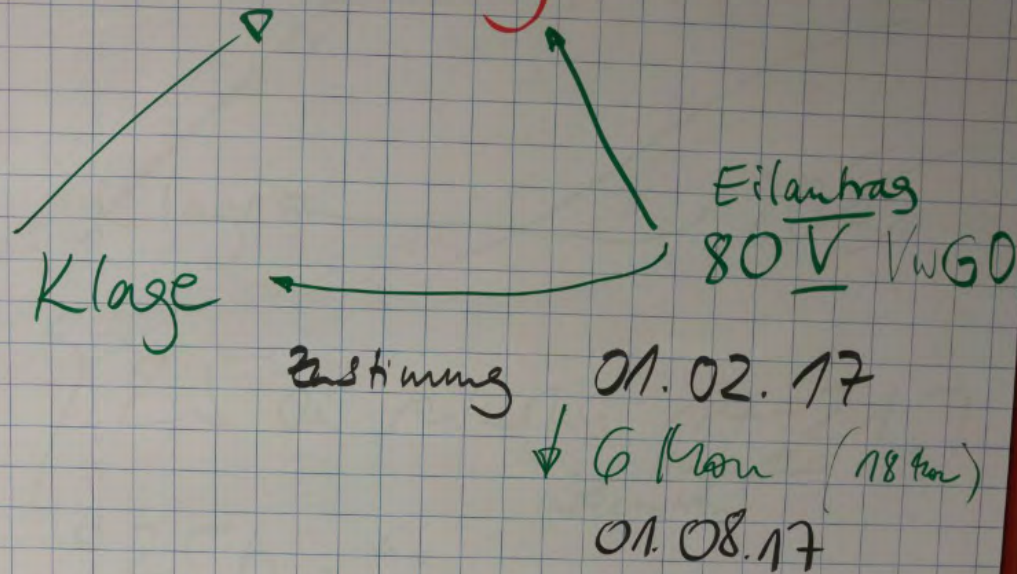 Eilantrag
80 V VwGO
Klage
Zustimmung 01.02.17
6 Mon (18 Mon)
01.08.17